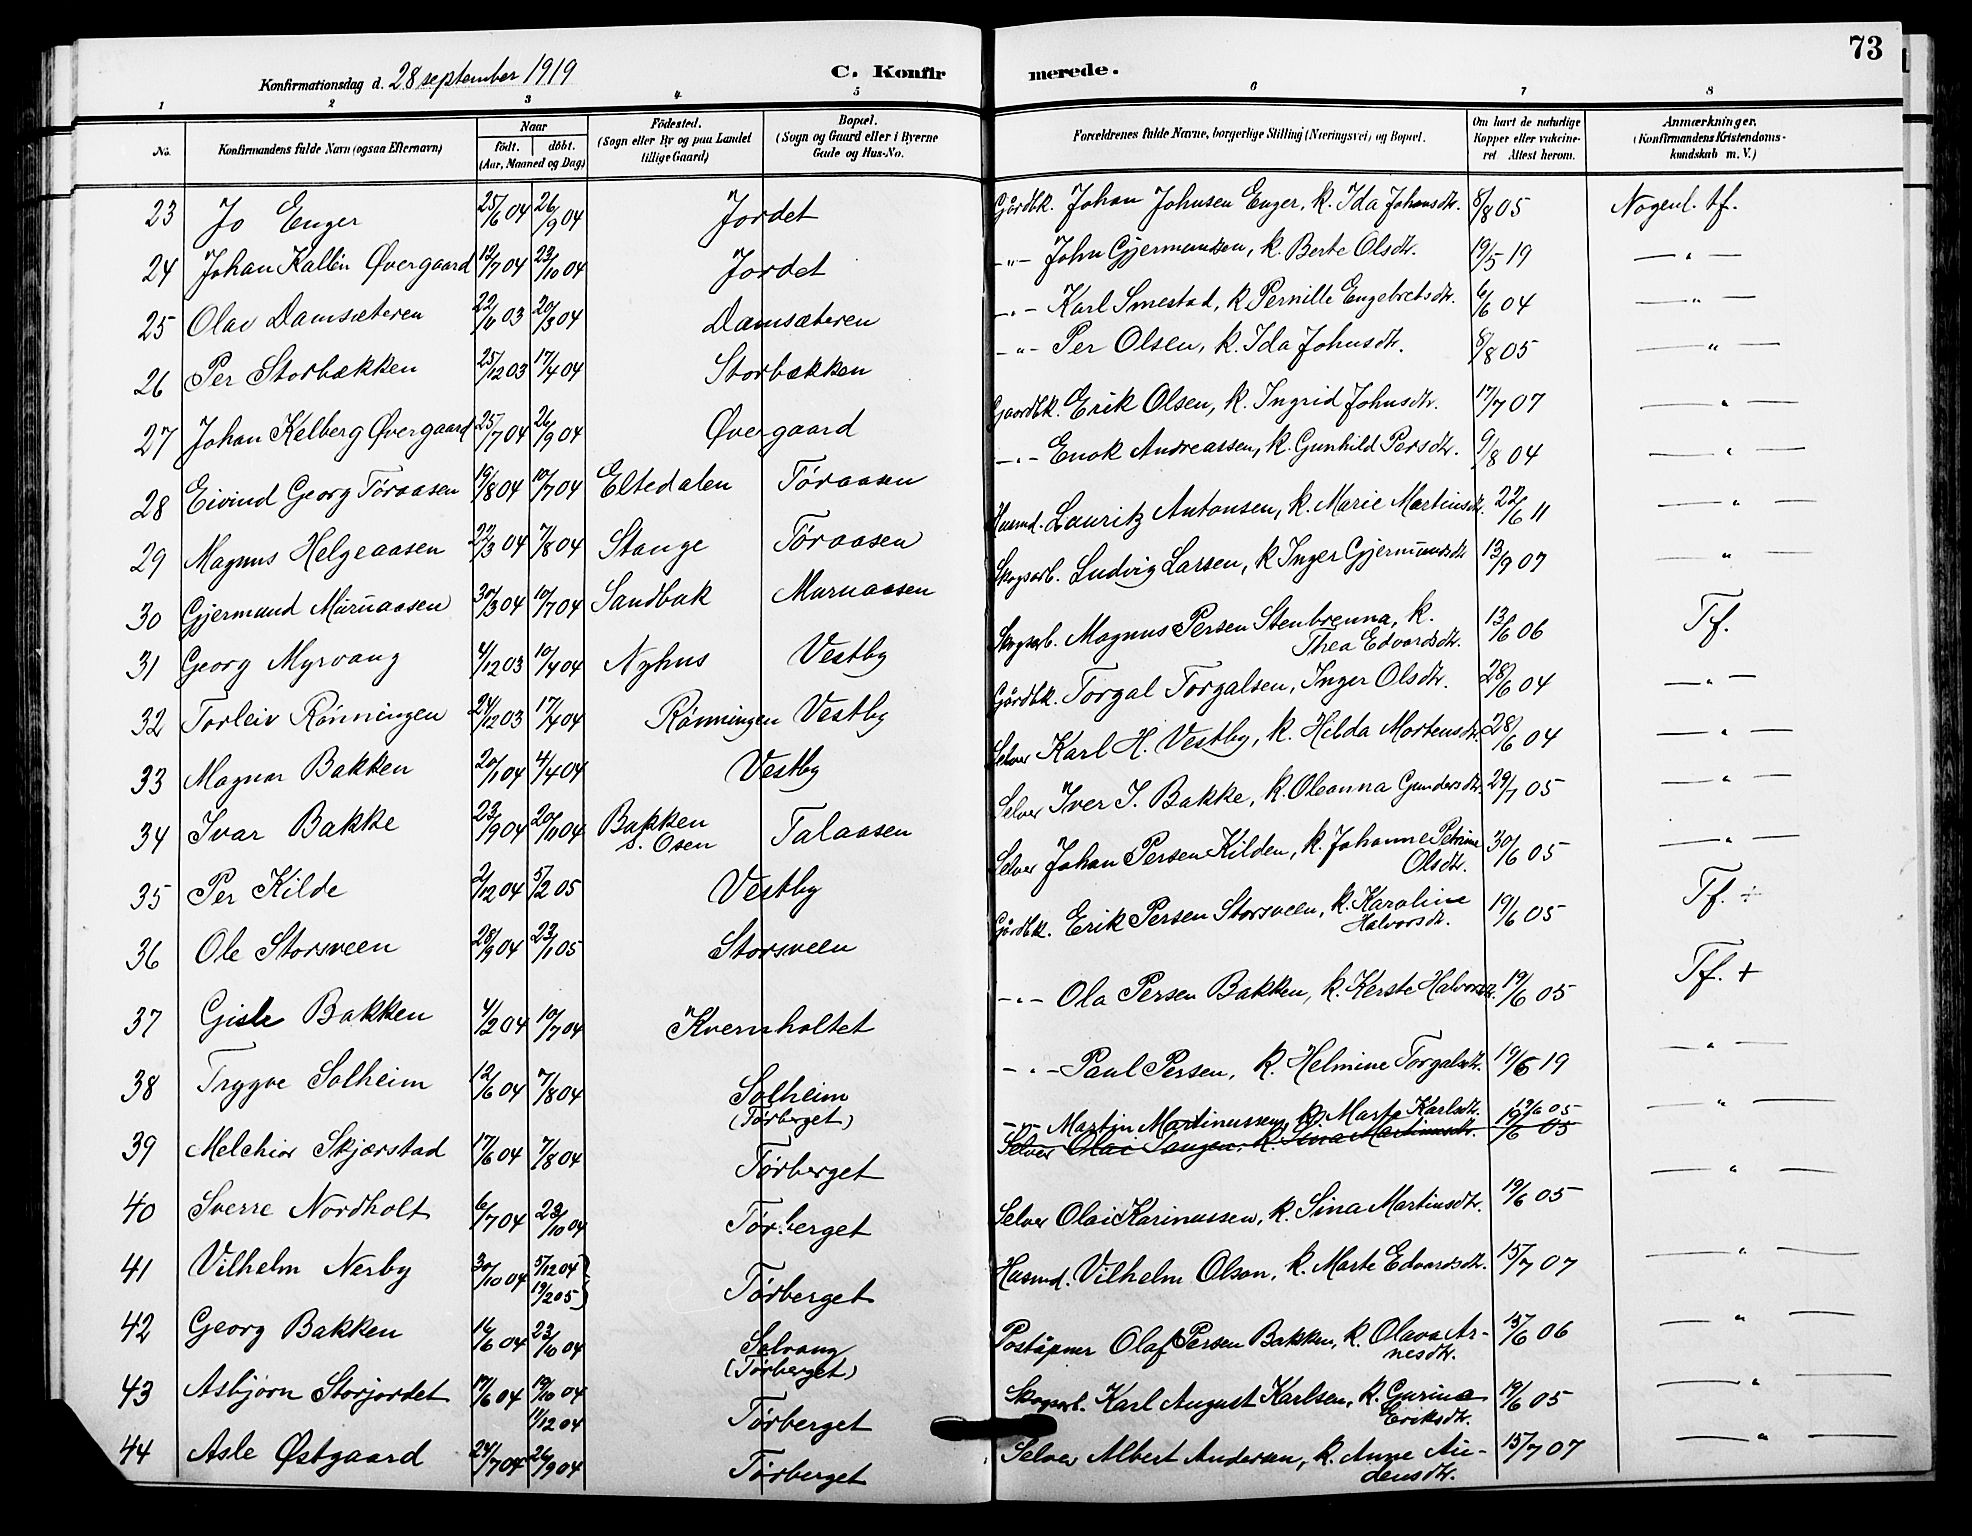 73
Konfirmationsdag d. 28 september 1919 C. Konfirmerede.
1 2 3 4 5 6 7 8
No. Konfirmandens fulde Navn (ogsaa Efternavn) Naar født. døbt. (Aar, Maaned og Dag) Födested. (Sogn eller By og paa Landet tillige Gaard) Bopæl. (Sogn og Gaard eller i Byerne Gade og Hus-No. Forældrenes fulde Navne, borgerlige Stilling (Næringsvei) og Bopæl. Om havt de naturlige Kopper eller vakcineret Attest herom. Anmærkninger. (Konfirmandens Kristendomskundskab m. V.)
23 Jo Enger 25/6 04 26/9 04 Jordet Gårdbk. Johan Johnsen Enger, k. Ida Johansdtr. 8/8 05 Nogenl. tf.
24 Johan Kallin Øvergaard 12/7 04 23/10 04 Jordet -"- John Gjermundsen, k. Berte Olsdtr. 19/5 19 -"-
25 Olav Damsæteren 22/11 03 20/3 04 Damsæteren -"- Karl Smestad, k. Pernille Engebretsdtr. 6/6 04 -"-
26 Per Storbækken 25/12 03 17/4 04 Storbækken -"- Per Olsen, k. Ida Johnsdtr. 8/8 05 -"-
27 Johan Kelberg Øvergaard 25/7 04 26/9 04 Øvergaard Gaardbk. Erik Olsen, k. Ingrid Johnsdtr. 17/7 07 -"-
28 Eivind Georg Töraasen 19/8 04 10/7 04 Eltedalen Töraasen -"- Enok Andreassen, k. Gunhild Persdtr. 9/8 04 -"-
29 Magnus Helgeaasen 22/3 04 7/8 04 Stange Töraasen Husmd. Lauritz Antonsen, k. Marie Martinsdtr. 22/6 11 -"-
30 Gjermund Muruaasen 30/3 04 10/7 04 Sandbak Muruaasen Skogsarb. Ludvig Larsen, k. Inger Gjermundsdtr 13/9 07 -"-
31 Georg Myrvang 4/12 03 10/4 04 Nyhus Vestby Skogsarb. Magnus Persen Stenbrenna, k. Thea Edvardsdtr. 13/6 06 Tf.
32 Torleiv Rönningen 24/12 03 17/4 04 Rönningen Vestby Gårdbk. Torgal Torgalsen, Inger Olsdtr. 28/6 04 -"-
33 Magnar Bakken 20/1 04 4/4 04 Vestby Selver Karl H. Vestby, k. Hilda Mortensdtr. 28/6 04 -"-
34 Ivar Bakke 23/9 04 20/11 04 Bakken s. Osen Talaasen Selver Iver I. Bakke, k. Oleanna Gundersdtr. 29/7 05 -"-
35 Per Kilde 2/12 04 5/2 05 Vestby Selver Johan Persen Kilden, k. Johanne Petrine Olsdtr. 30/6 05 -"-
36 Ole Storsveen 28/9 04 23/1 05 Storsveen Gårdbk. Erik Persen Storsveen, k. Karoline Halvorsdtr. 19/6 05 Tf. ÷
37 Gisle Bakken 4/2 04 10/7 04 Kvernholtet -"- Ola Persen Bakken, k. Kerste Halvorsdtr. 19/6 05 Tf. +
38 Trygve Solheim 12/6 04 7/8 04 Solheim (Tørberget) -"- Paul Persen, k. Helmine Torgalsdtr. 19/6 19 -"-
39 Melchior Skjærstad 17/6 04 7/8 04 Tørberget -"- Martin Martinussen, k. Marte Karlsdtr. 19/6 05 -"-
Selver Olai Tangen, k. Sina Martinusdtr. 19/6 05
40 Sverre Nordholt 6/7 04 23/10 04 Tørberget Selver Olai Karinussen, k. Sina Martinsdtr. 19/6 05 -"-
41 Vilhelm Nerby 30/10 04 5/12 04 19/2 05 Tørberget Husmd. Vilhelm Olson, k. Marte Edvardsdtr. 15/7 07 -"-
42 Georg Bakken 16/6 04 23/10 04 Solvang (Tørberget) Poståpner Olaf Persen Bakken, k. Olava Arnesdtr. 15/6 06 -"-
43 Asbjørn Storjordet 17/6 04 19/10 04 11/12 04 Tørberget Skogsarb. Karl August Karlsen, k. Gurina Eriksdtr. 19/6 05 -"-
44 Asle Østgaard 24/7 04 26/9 04 Tørberget Selver Albert Andersen, k. Anne Audensdtr. 15/7 07 -"-